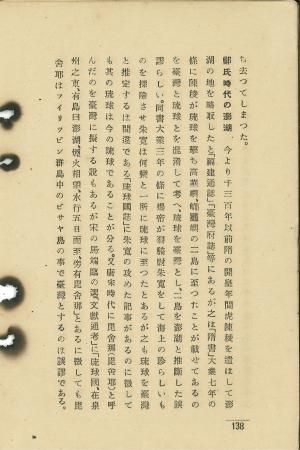 ち去つてしまつた。
鄭氏時代の澎湖 今より千三百年以前隋の開皇年間虎陳稜を遣はして澎
湖の地を略取したと「福建通志」「臺灣府誌」等にあるが之は「隋書」大業七年の
條に陳稜が琉球を擊ち高華嶼、𪓟鼊嶼の二島に至つたことが載せてあるの
を臺灣と琉球とを混淆して考へ、琉球を臺灣とし、二島を澎湖と推斷した誤
謬らしい。同書大業三年の條に煬帝が羽騎尉朱寬をして海上の珍らしいも
のを採險させ朱寬は何蠻と一所に琉球に至つたとあるが之も琉球を臺灣
と推定するは間違である「琉球國誌」に朱寬の攻めた記事があるのに徵して
も其の琉球は今の琉球であることが分る。又唐宋時代に毘舍那(毘舍耶)と呼
んだのを臺灣に擬する說もあるが宋の馬端臨の選「文獻通考」に「琉球國、在泉
州之東、有島曰澎湖、烟火相望、水行五日而至、旁有毘舍那」とあるに徵しても毘
舍耶はフイリツピン群島中のビサヤ島の事で臺灣とするのは誤謬である。
138